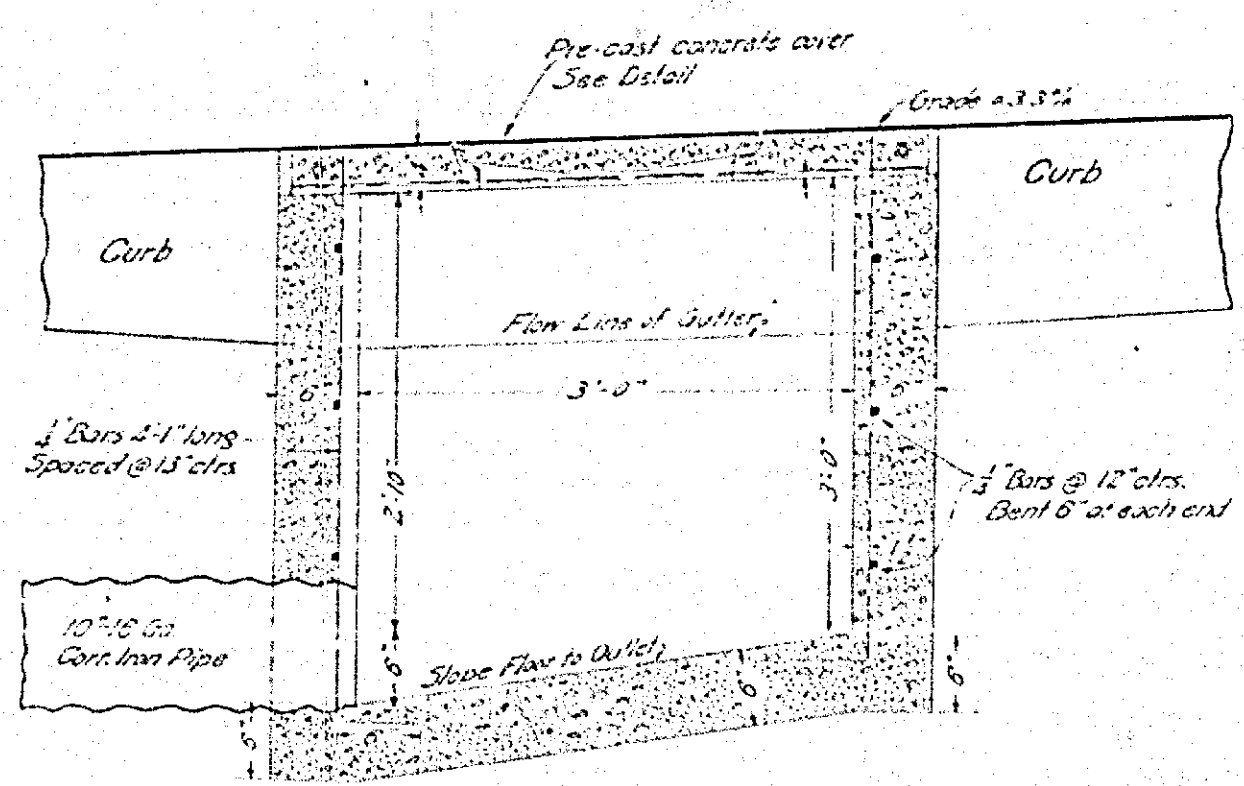 Pre-cast concrete cover
See Detail
Grade = 3.3%
Curb
Curb
Flow Line of Gutter
3'-0"
6"
Bars 4'-1" long
Spaced @ 13" ctrs.
2'-10"
3'-0"
Bars @ 12" ctrs.
Bent 6" at each end
10"-16 Ga.
Corr. Iron Pipe
6"
Slope Floor to Outlet
6"
6"